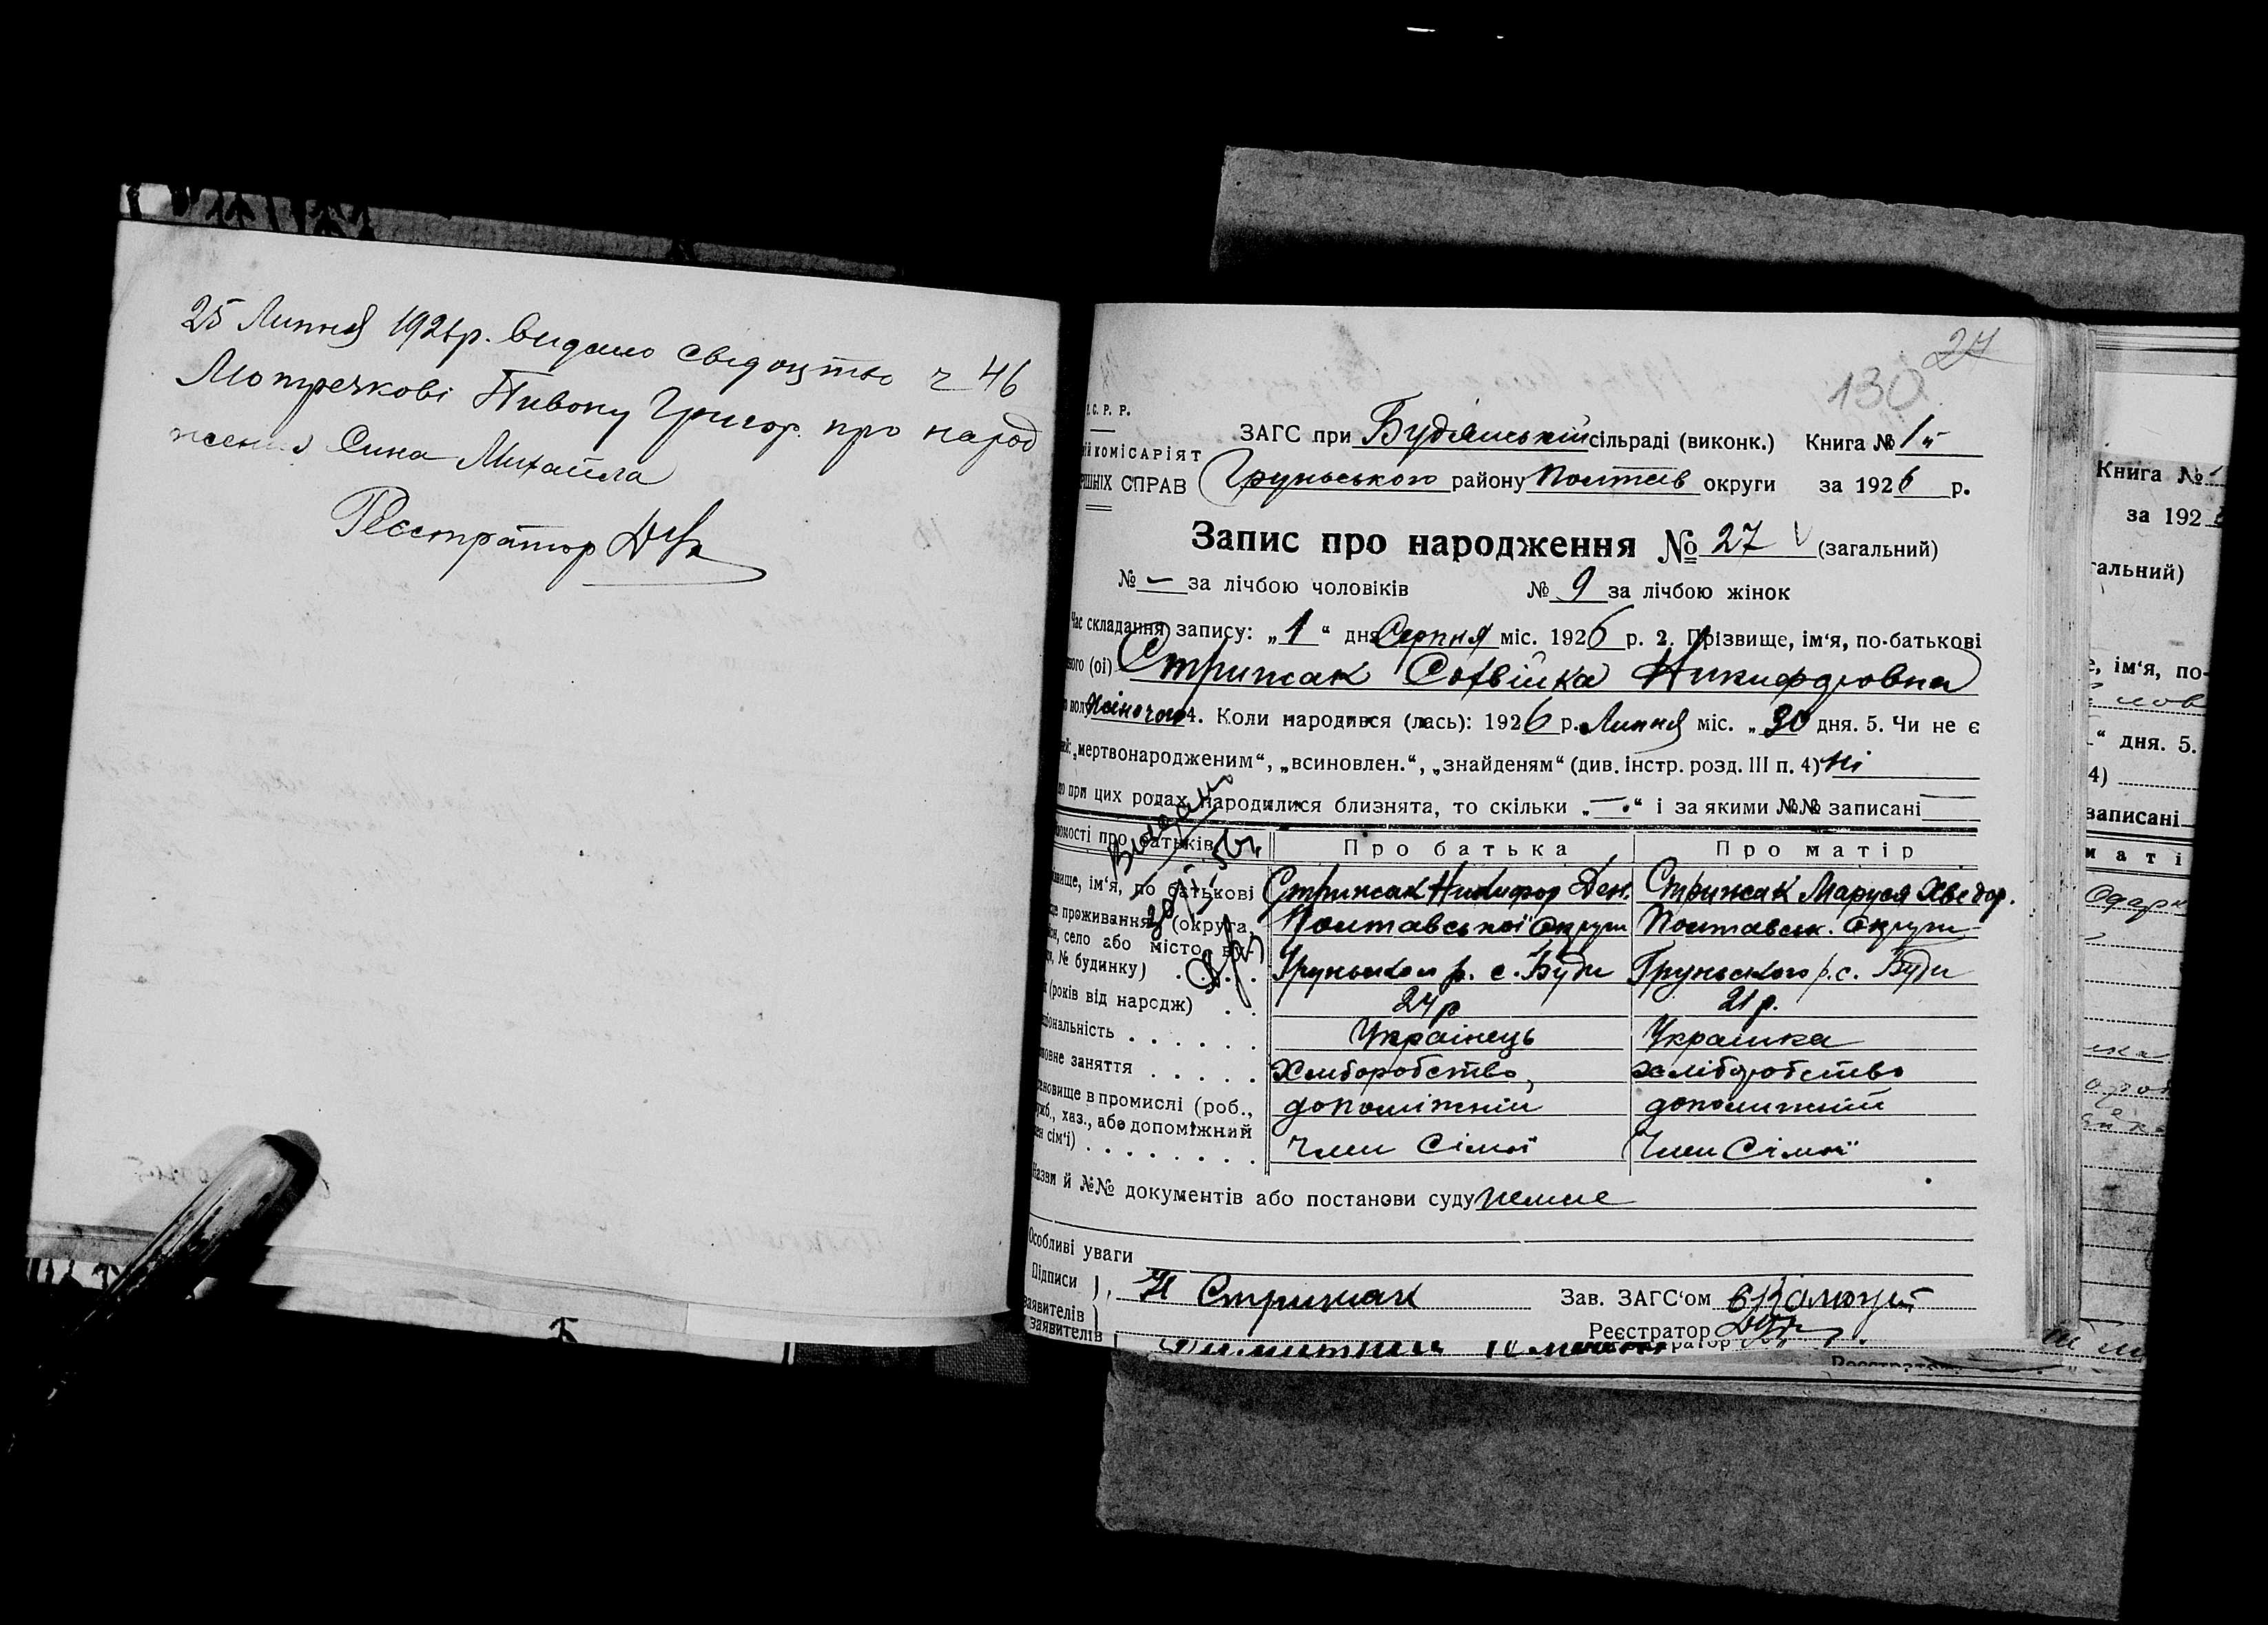 25 Липня 1926р. видано свідоцтво ч 46
Мотречкові Пивону Григор. про народ
ження Сина Михайла
Реєстратор
27
130
С. Р. Р.
ЗАГС при Будянській сільраді (виконк.) Книга № 1й
КОМІСАРІЯТ
СПРАВ Груньського району Полтав округи за 1926 р.
Запис про народження № 27 V (загальний)
№ — за лічбою чоловіків № 9 за лічбою жінок
Час складання запису: „1“ дня Серпня міс. 1926 р. 2. Прізвище, ім‘я, по-батькові
ного (ої) Стрижак Никифоровна
полу жіночого 4. Коли народився (лась): 1926 р. Липня міс. „30 дня. 5. Чи не є
„мертвонародженим“, „всиновлен.“, „знайденям“ (див. інстр. розд. III п. 4) ні
при цих родах народилися близнята, то скільки „—.“ і за якими №№ записані —
Видано
про батьків Про батька Про матір
ім‘я, по батькові Стрижак Никифор Ден. Стрижак Маруся Хведор.
проживання (округа, Полтавської Округи Полтавськ. Округи
село або місто, ву-
№ будинку) . . . Груньском р. с. Буди Груньского р. с. Буди
(років від народж) . . 24р 21р.
ціональність . . . . . . Українець Украінка
заняття . . . . . Хліборобство, хліборобство
становище в промислі (роб., допоміжній допоміжній
хаз., або допоміжний
сім‘ї) . . . . . . . . Член Сімої Член Сімої
Назви й №№ документів або постанови суду немае
Особливі уваги
Підписи
заявителів Н Стрижак Зав. ЗАГС‘ом
Реєстратор
заявителів
Книга № 1
за 192
гальний)
е, ім‘я, по-
“ дня. 5.
4)
записані
маті
Одарк